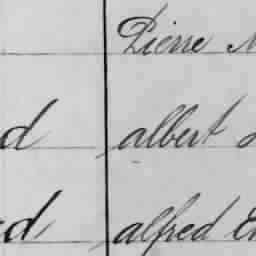 Pierre
d albert
d alfred